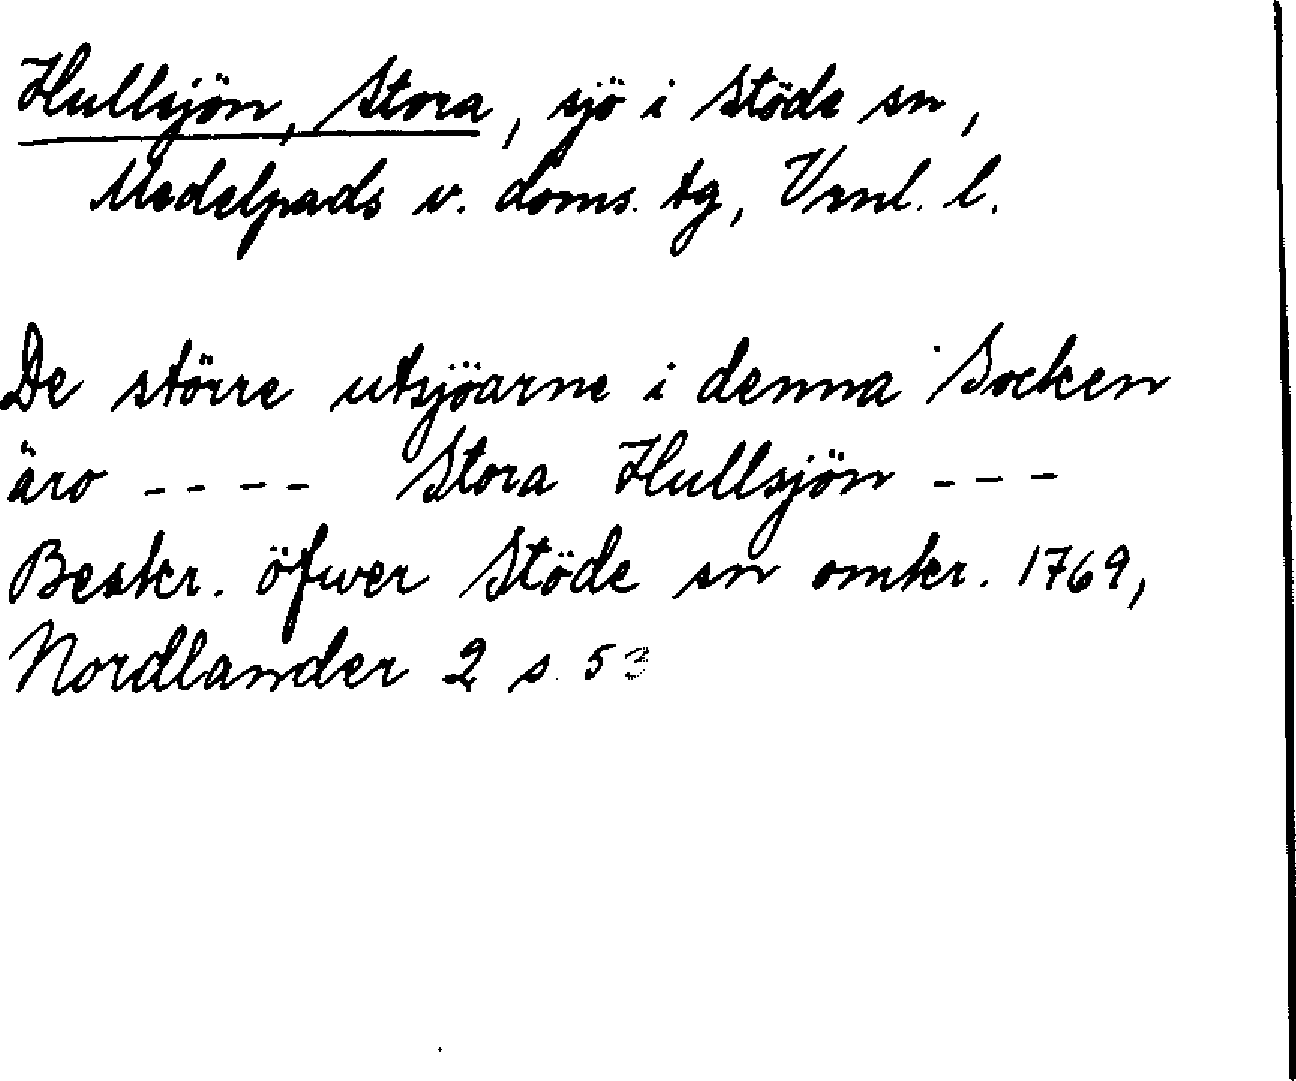 Hullsjön, Stora, sjö i Stöde sn,
Medelpads v. doms. tg, Vrnl. l.
De större utsjöarne i denna Socken
äro ---- Stora Hullsjön ---
Beskr. öfwer Stöde sn omkr. 1769,
Nordlander 2 s. 53